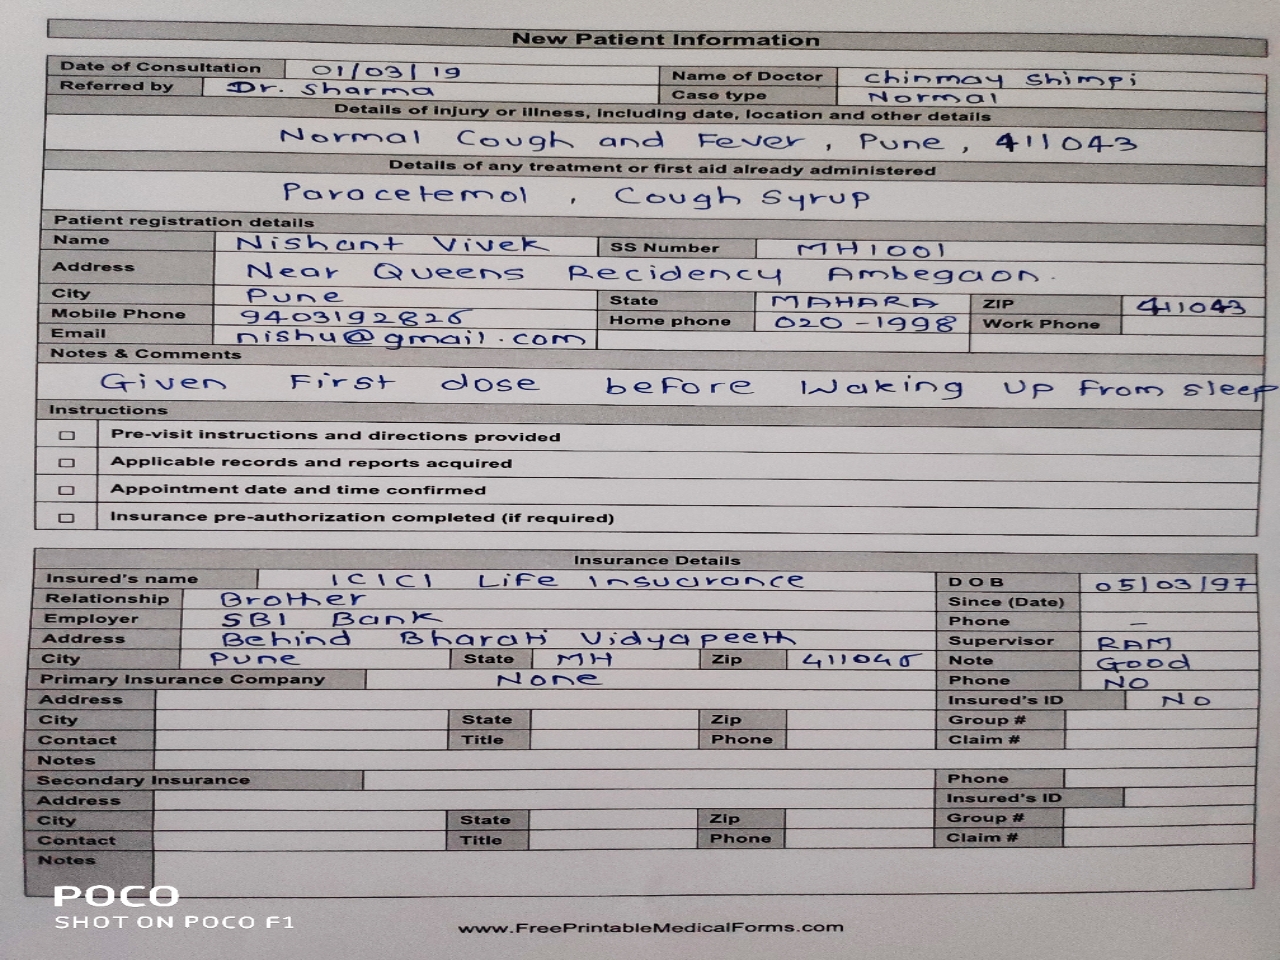 New Patient Information
Date of Consultation 01/03/19 Name of Doctor Chinmay Shimpi
Referred by Dr. Sharma Case type Normal
Details of injury or illness, including date, location and other details
Normal Cough and Fever, Pune, 411043
Details of any treatment or first aid already administered
Paracetemol, Cough Syrup
Patient registration details
Name Nishant Vivek SS Number MH1001
Address Near Queens Recidency Ambegaon.
City Pune State MAHARA ZIP 411043
Mobile Phone 9403192826 Home phone 020-1998 Work Phone
Email nishu@gmail.com
Notes & Comments
Given First dose before Waking Up from sleep
Instructions
Pre-visit instructions and directions provided
Applicable records and reports acquired
Appointment date and time confirmed
Insurance pre-authorization completed (if required)
Insurance Details
Insured's name ICICI Life Insurance DOB 05/03/97
Relationship Brother Since (Date)
Employer SBI Bank Phone —
Address Behind Bharati Vidyapeeth Supervisor RAM
City Pune State MH Zip 411046 Note Good
Primary Insurance Company None Phone NO
Address Insured's ID NO
City State Zip Group #
Contact Title Phone Claim #
Notes
Secondary Insurance Phone
Address Insured's ID
City State Zip Group #
Contact Title Phone Claim #
Notes
POCO
SHOT ON POCO F1
www.FreePrintableMedicalForms.com